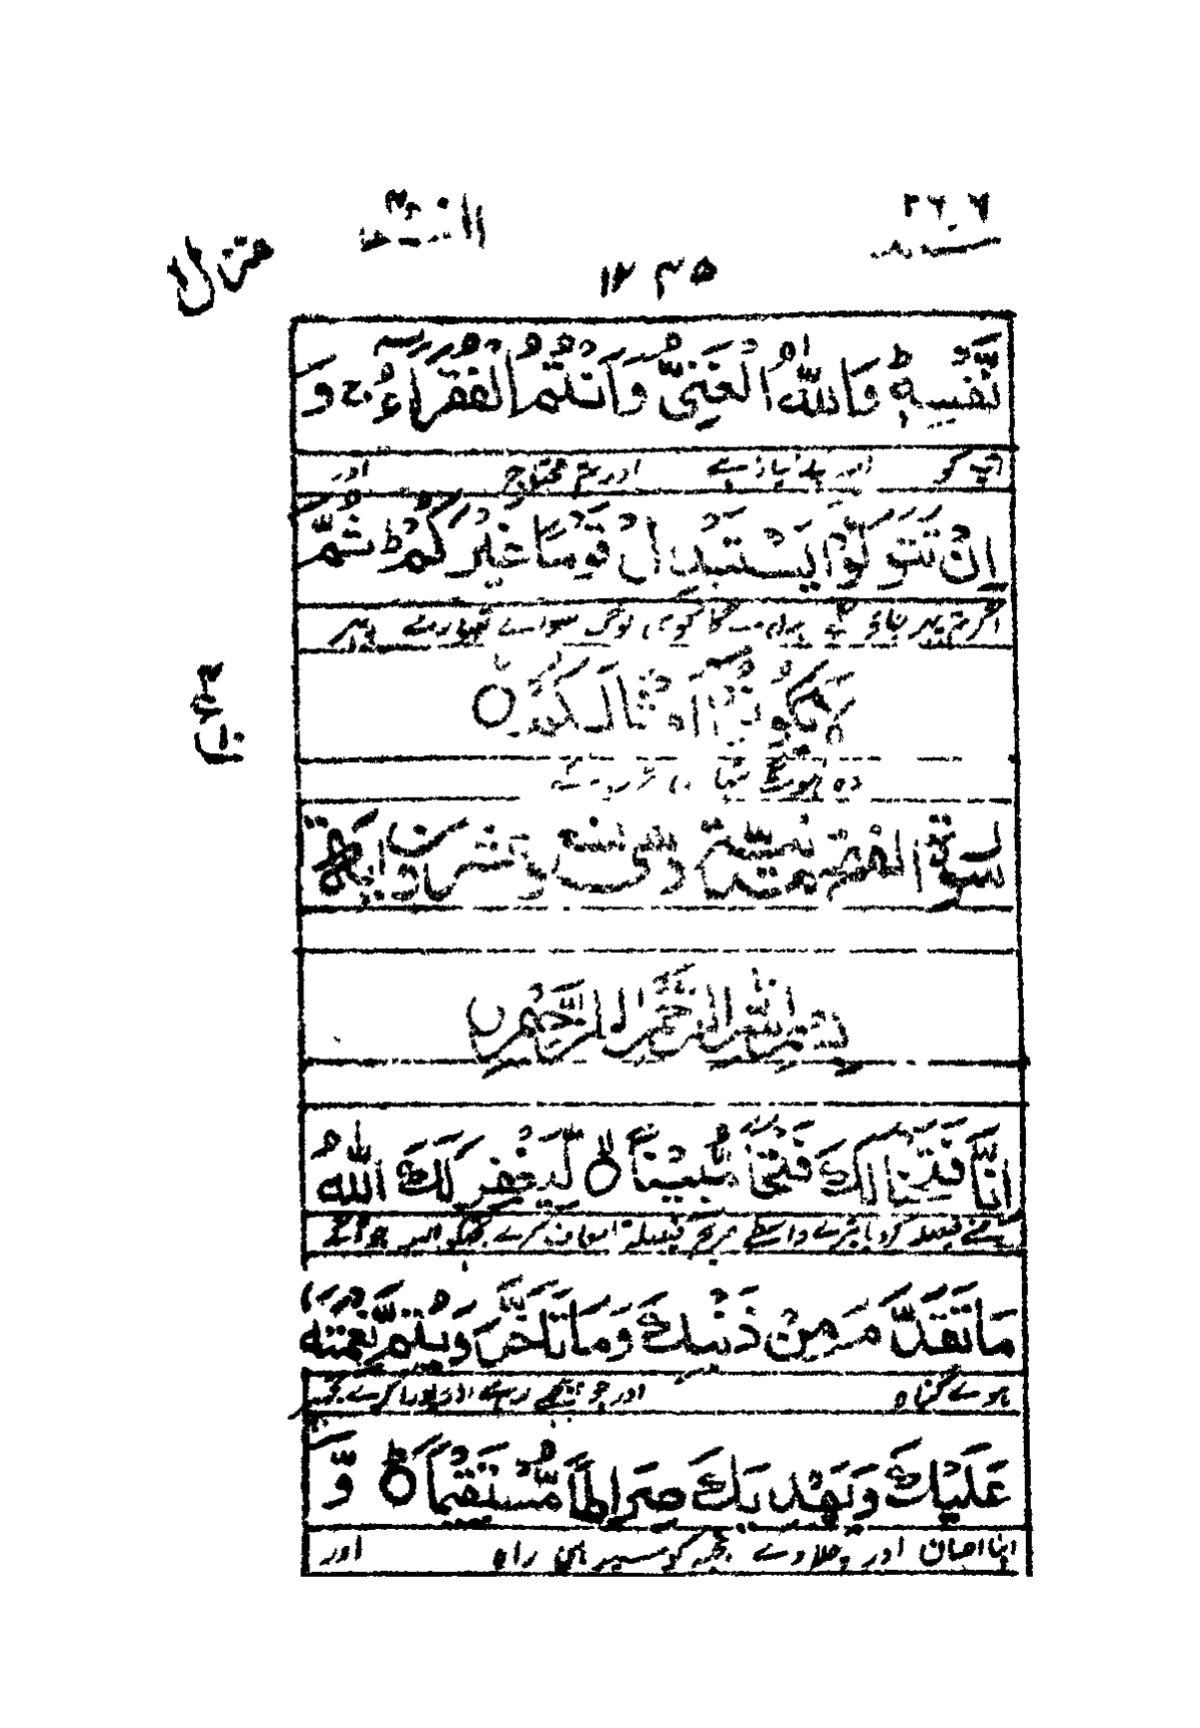 ۱۲۴۵
منزل
نَّفْسِهٖ ؕ وَاللّٰهُ الْغَنِيُّ وَاَنْتُمُ الْفُقَرَآءُ ۚ وَ
آپ کو اور بے نیاز ہے اور تم محتاج اور
اِنْ تَتَوَلَّوْا يَسْتَبْدِلْ قَوْمًا غَيْرَكُمْ ؕ ثُمَّ
اگر تم پھر جاؤ گے لوگ سوائے تمہارے پھر
لَا يَكُوْنُوْٓا اَمْثَالَكُمْ ○
وہ ہونگے
سورة الفتح مدنية وهي تسع وعشرون اية
بسم الله الرحمن الرحيم
اِنَّا فَتَحْنَا لَكَ فَتْحًا مُّبِيْنًا ○ لِّيَغْفِرَ لَكَ اللّٰهُ
فیصلہ کر دیا تیرے واسطے صریح فیصلہ تا معاف کرے تجھکو اللہ جو آگے
مَا تَقَدَّمَ مِنْ ذَنْبِكَ وَمَا تَاَخَّرَ وَيُتِمَّ نِعْمَتَهٗ
ہوے گناہ اور جو پیچھے رہے اور پورا کرے تجھپر
عَلَيْكَ وَيَهْدِيَكَ صِرَاطًا مُّسْتَقِيْمًا ○ وَّ
اپنا احسان اور چلاوے تجھ کو سیدھی راہ اور